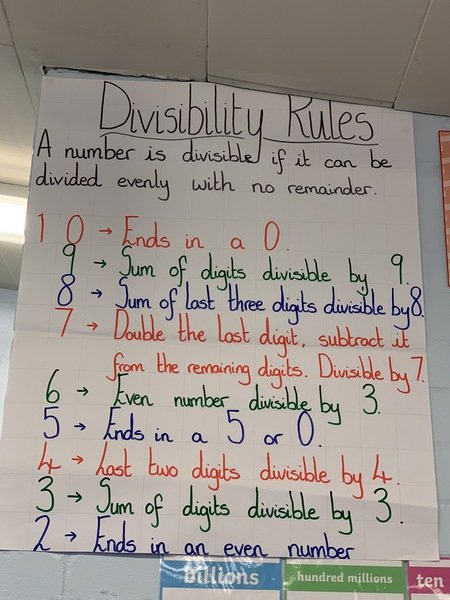 Divisibility Rules
A number is divisible if it can be
divided evenly with no remainder.
10 → Ends in a 0.
9 → Sum of digits divisible by 9.
8 → Sum of last three digits divisible by 8.
7 → Double the last digit, subtract it
from the remaining digits. Divisible by 7.
6 → Even number divisible by 3.
5 → Ends in a 5 or 0.
4 → Last two digits divisible by 4.
3 → Sum of digits divisible by 3.
2 → Ends in an even number
billions
hundred millions
ten